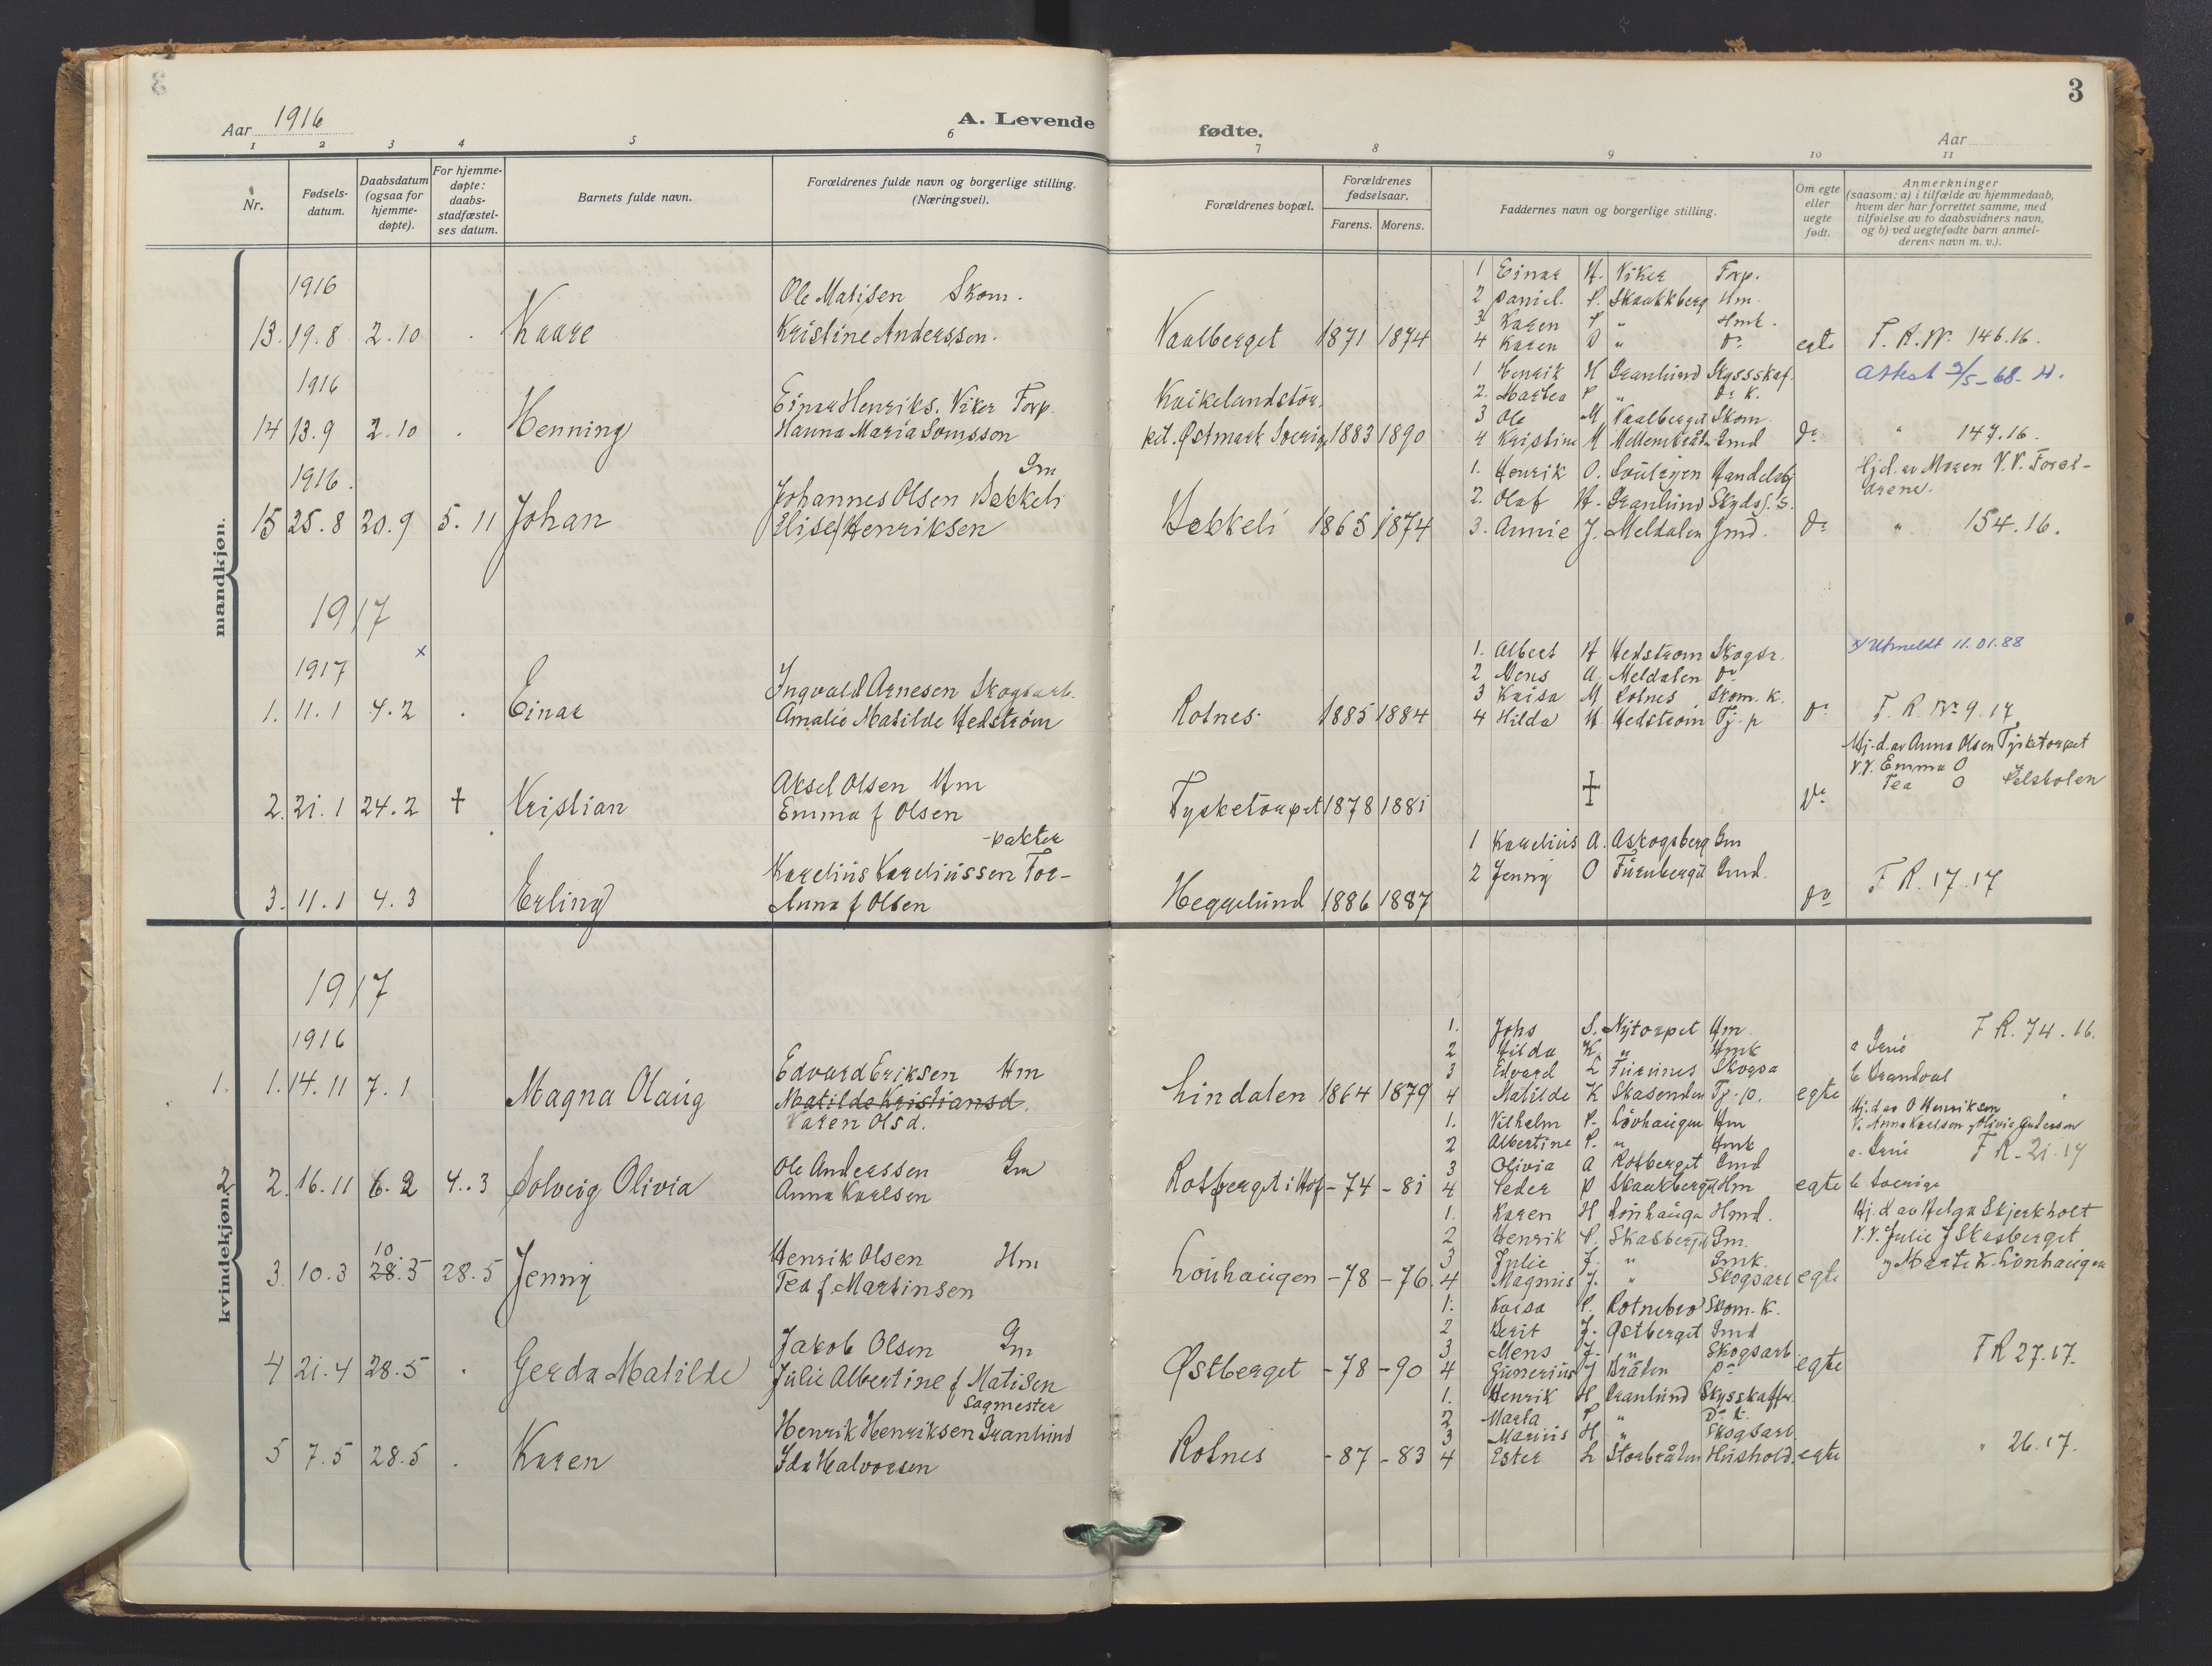 3
Aar 1916
A. Levende fødte.
Aar
1 2 3 4 5 6 7 8 9 10 11
Nr.
Fødsels-
datum.
Daabsdatum
(ogsaa for
hjemme-
døpte).
For hjemme-
døpte:
daabs-
stadfæstel-
ses datum.
Barnets fulde navn.
Forældrenes fulde navn og borgerlige stilling.
(Næringsvei).
Forældrenes bopæl.
Forældrenes
fødselsaar.
Farens. Morens.
Faddernes navn og borgerlige stilling.
Om egte
eller
uegte
født.
Anmerkninger
(saasom: a) i tilfælde av hjemmedaab,
hvem der har forrettet samme, med
tilføielse av to daabsvidners navn,
og b) ved uegtefødte barn anmel-
derens navn m. v.).
mandkjøn.
1916
13. 19.8 2.10 . Kaare
Ole Matisen Skom.
Kristine Anderssen.
Vaalberget 1871 1874
1 Einar H. Viker Forp.
2 Daniel P. Skaakkberg Hm.
3 Karen P " Hmk.
4 Karen D " Do
egte F. R. No. 146.16.
1916
14 13.9 2.10 . Henning
Einar Henriks. Viker Forp.
Hanna Maria Jonsson
pit. Østmark Sverig 1883 1890
1 Henrik H Granlund Skyssskaf.
2. Martea P " Do K.
3 Ole M Vaalberget Skom
4 Kristine M Mellembråten Gmd
Do " 147.16.
Attest 2/5-68- H.
1916.
15 25.8 20.9 5.11 Johan
Gm
Johannes Olsen Bekkeli
Elise f Henriksen
Bekkeli 1865 1874
1. Henrik O. Soulsjen Handelsbj
2. Olaf H. Granlund Skyds f. S.
3. Annie J. Meldalen Gmd.
Hj.d. av Moren V.V. Foræl-
drene.
Do " 154.16.
1917
x
1917
1. 11.1 4.2 . Einar
Ingvald Arnesen Skogsarb.
Amalie Matilde Hedstrøm
Rotnes. 1885 1884
1. Albert H Hedstrøm Skogsr.
2 Mens A. Meldalen Do
3 Kaisa M Rotnes Skom. K.
4 Hilda H Hedstrøm Tj. p
Do
x) Utmeldt 11.01.88
F. R. No 9.17
2. 21.1 24.2 + Kristian
Aksel Olsen Hm
Emma f Olsen
Tysketorpet 1878 1881
Do
Hj.d. av Anna Olsen Tysketorpet
V.V. Emma O
Tea O
3. 11.1 4.3 Erling
-pakter
Karelius Kareliussen For-
Anna f Olsen
Heggelund 1886 1887
1 Karelius A. Askogsberg Gm
2 Jenny O Furuberget Gmd.
Do F R. 17.17
kvindekjøn.
1917
1916
1. 1. 14.11 7.1 Magna Olaug
Edvard Eriksen Hm
Matilde Kristiansd.
Karen Olsd.
Lindalen 1864 1879
1. Johs S. Nytorpet Hm
2 Hilda K. " Hmk
3 Edvard L Furunes Skogsa
4 Matilde K Skasenden Tj. p.
egte
F R. 74.16.
a Grue
b Brandval
2 2. 16.11 6.2 4.3 Solveig Olivia
Ole Anderssen Gm
Anna Karlsen
Rotberget i Hof -74 -81
1. Vilhelm P. Lövhaugen Hm
2 Albertine P. " Hmk
3 Olivia A Rotberget Gmd
4 Peder P Skaakberget Hm
egte
Hj.d av O Henriksen
V. Anna Karlsen, Olivia Anderson
a. Grue F R. 21.17
b Sverige
3. 10.3 10 28.5 28.5 Jenny
Henrik Olsen Hm
Tea f. Martinsen
Lönhaugen -78 -76
1. Karen H Lönhauga Hmd.
2 Henrik P. Skasberget Gm.
3 Julie J. " Gmk.
4 Magnus J. " Skogsarb
egte
Hj.d av Helga Skjerkholt
V.V. Julie J Skasberget
og Marte K. Lönhaugen
4 21.4 28.5 . Gerda Matilde
Jakob Olsen Gm
Julie Albertine f Matisen
Østberget -78 -90
1. Kaisa P. Rotnebro Skom. K.
2 Berit J. Østberget Gmd
3 Mens J. " Skogsarb.
4 Gunerius J Bråten Do
egte F R 27.17.
5 7.5 28.5 . Karen
Sagmester
Henrik Henriksen Granlund
Ida Halvorsen
Rotnes -87 -83
1. Henrik H Granlund Skysskaffer.
2 Marta P " Do k.
3 Marius H " Skogsarb.
4 Ester L Storbråten Hushold.
egte " 26.17.